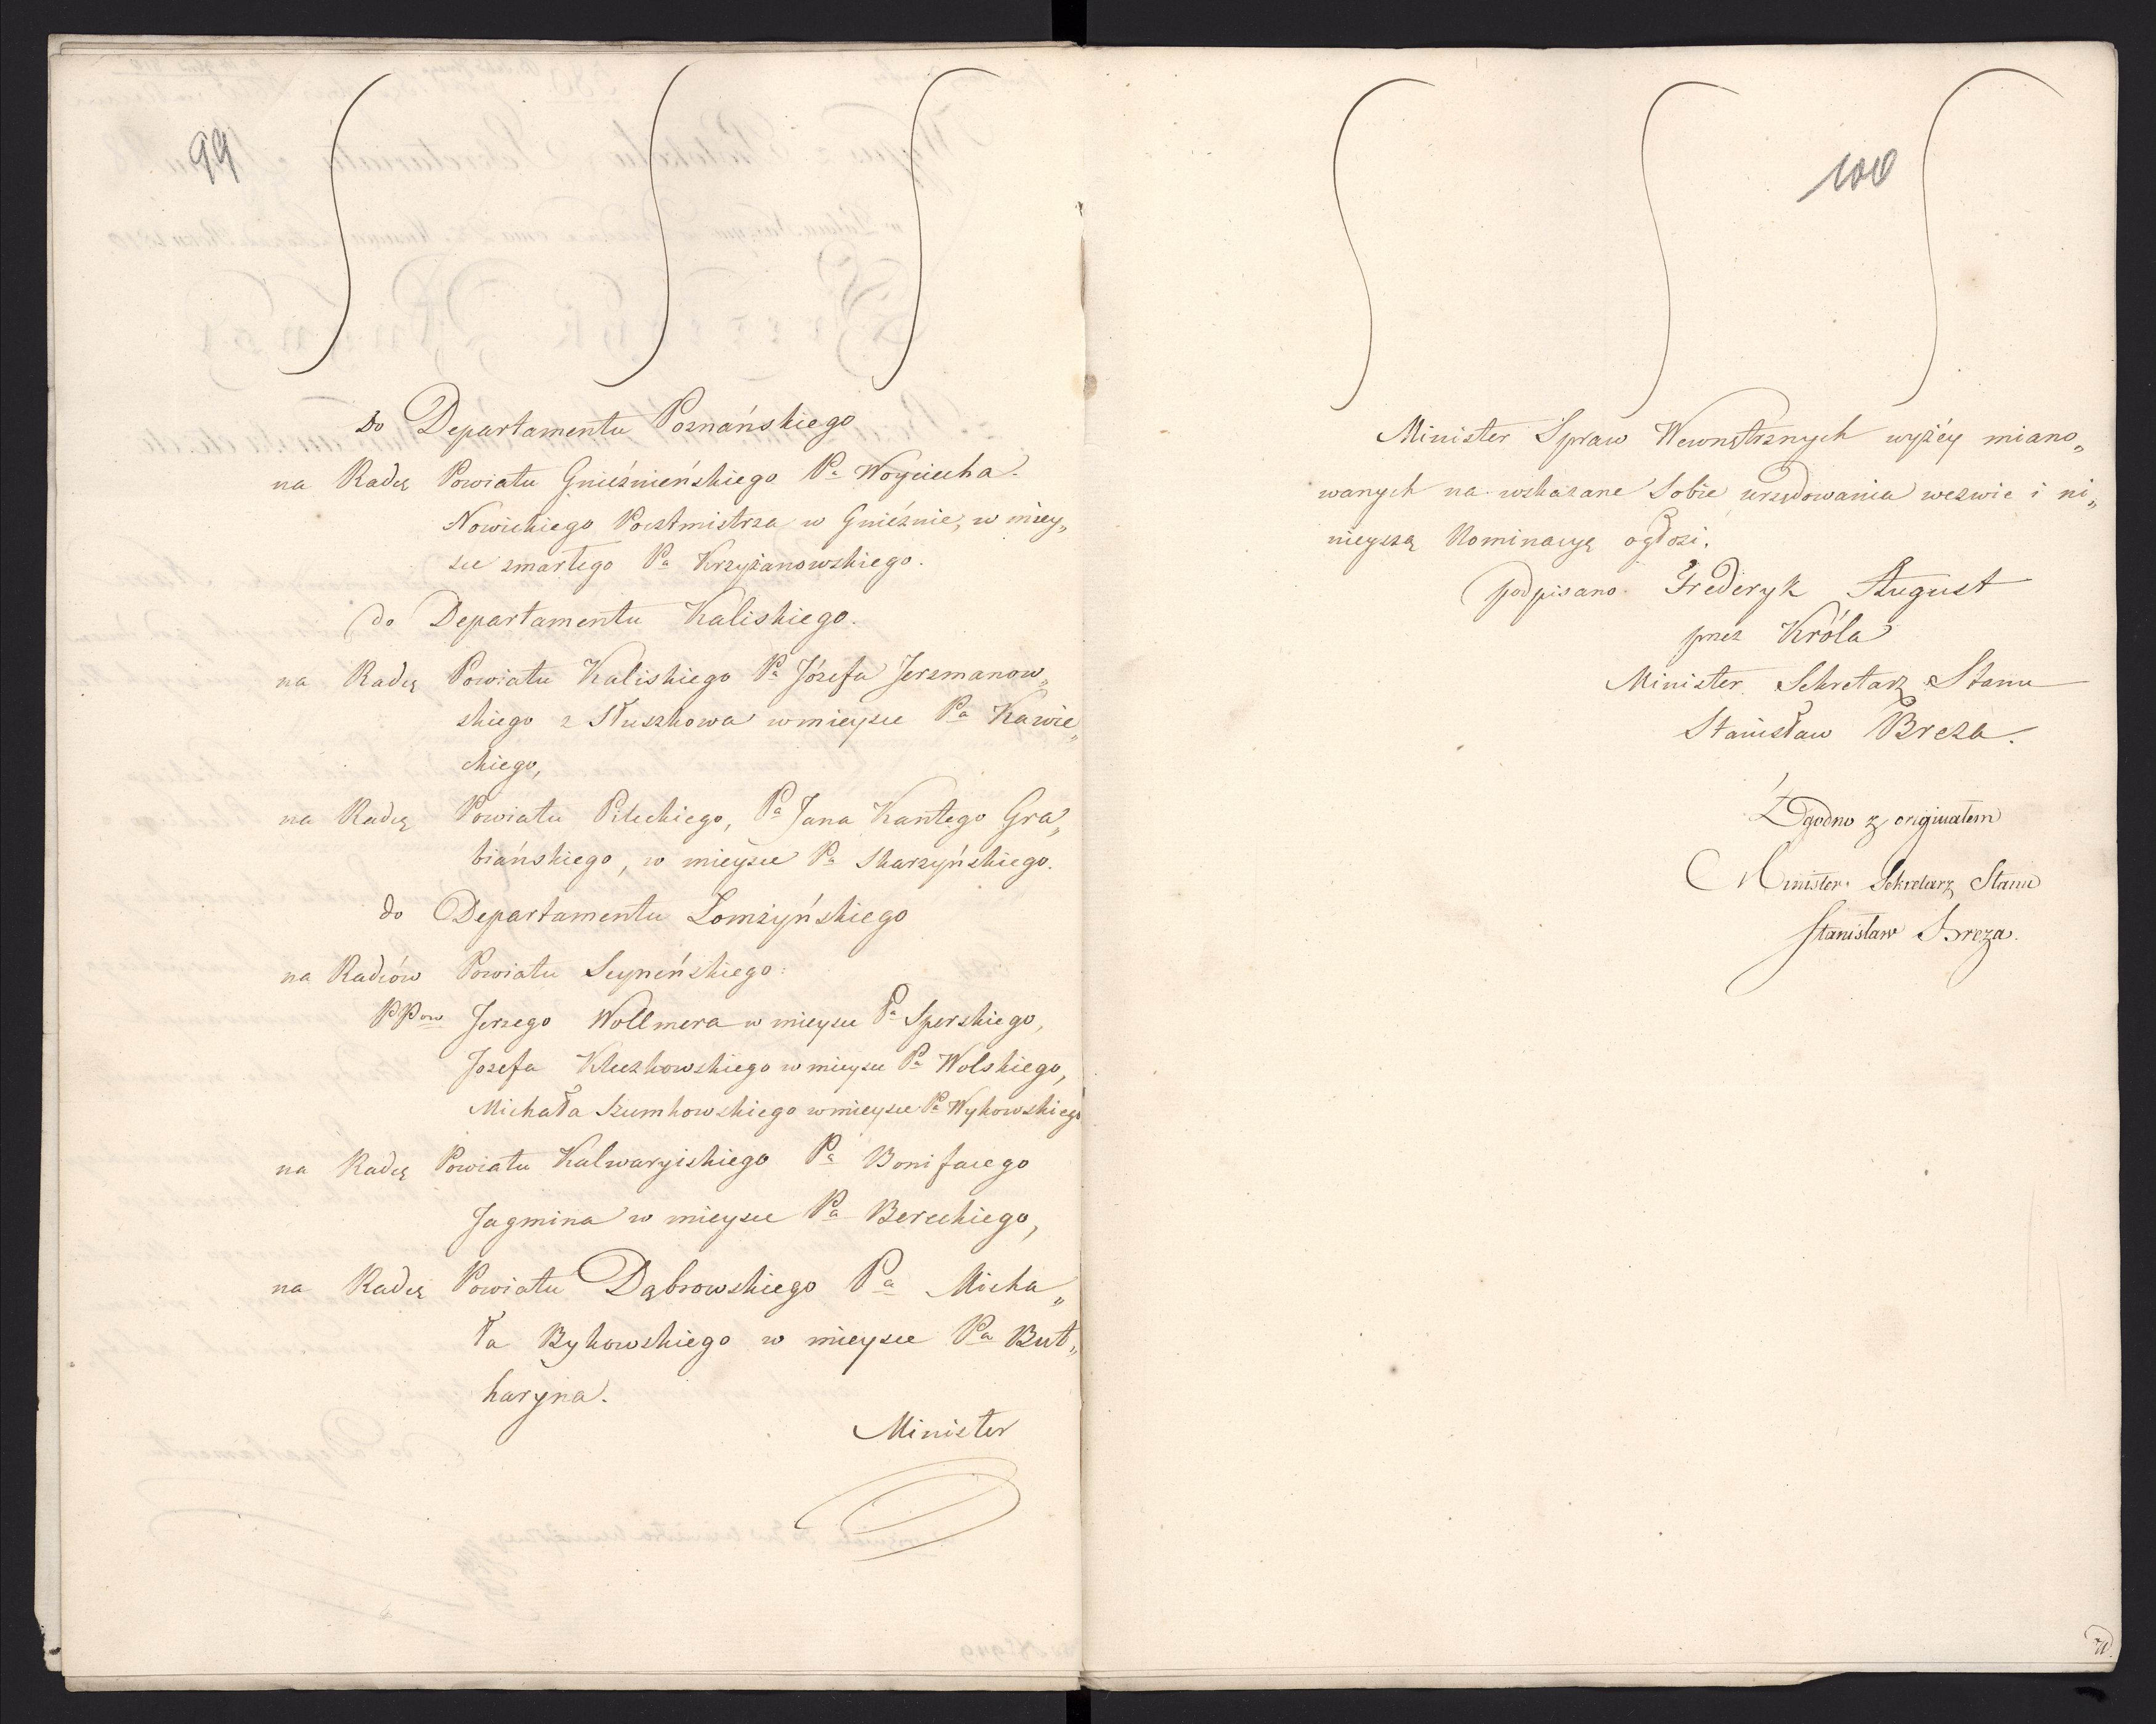 99
do Departamentu Poznańskiego
na Radcę Powiatu Gnieźnieńskiego Pa Woyciecha
Nowickiego Pocztmistrza w Gnieźnie, w miey„
sce zmarłego Pa Krzyżanowskiego.
do Departamentu Kaliskiego.
na Radcę Powiatu Kaliskiego Pa Józefa Jerzmanow„
skiego z Słuszkowa w mieysce Pa Kawie„
ckiego,
na Radcę Powiatu Pileckiego, Pa Jana Kantego Gra„
biańskiego, w mieysce Pa Skarzyńskiego.
do Departamentu Łomżyńskiego
na Radców Powiatu Seyneńskiego:
PPow Jerzego Wollmera w mieysce Pa Sperskiego,
Józefa Kleczkowskiego w mieysce Pa Wolskiego,
Michała Szumkowskiego w mieysce Pa Wykowskiego
na Radcę Powiatu Kalwaryiskiego Pa Bonifacego
Jagmina w mieysce Pa Bereckiego,
na Radcę Powiatu Dąbrowskiego Pa Micha„
ła Bykowskiego w mieysce Pa But„
haryna.
Minister
100
Minister Spraw Wewnętrznych wyżéy miano„
wanych na wskazane sobie urzędowania wezwie i ni„
nieyszą Nominacyę ogłosi.
podpisano Frederyk August
przez Króla
Minister Sekretarz Stanu
Stanisław Breza.
Zgodno z originałem
Minister Sekretarz Stanu
Stanisław Breza.